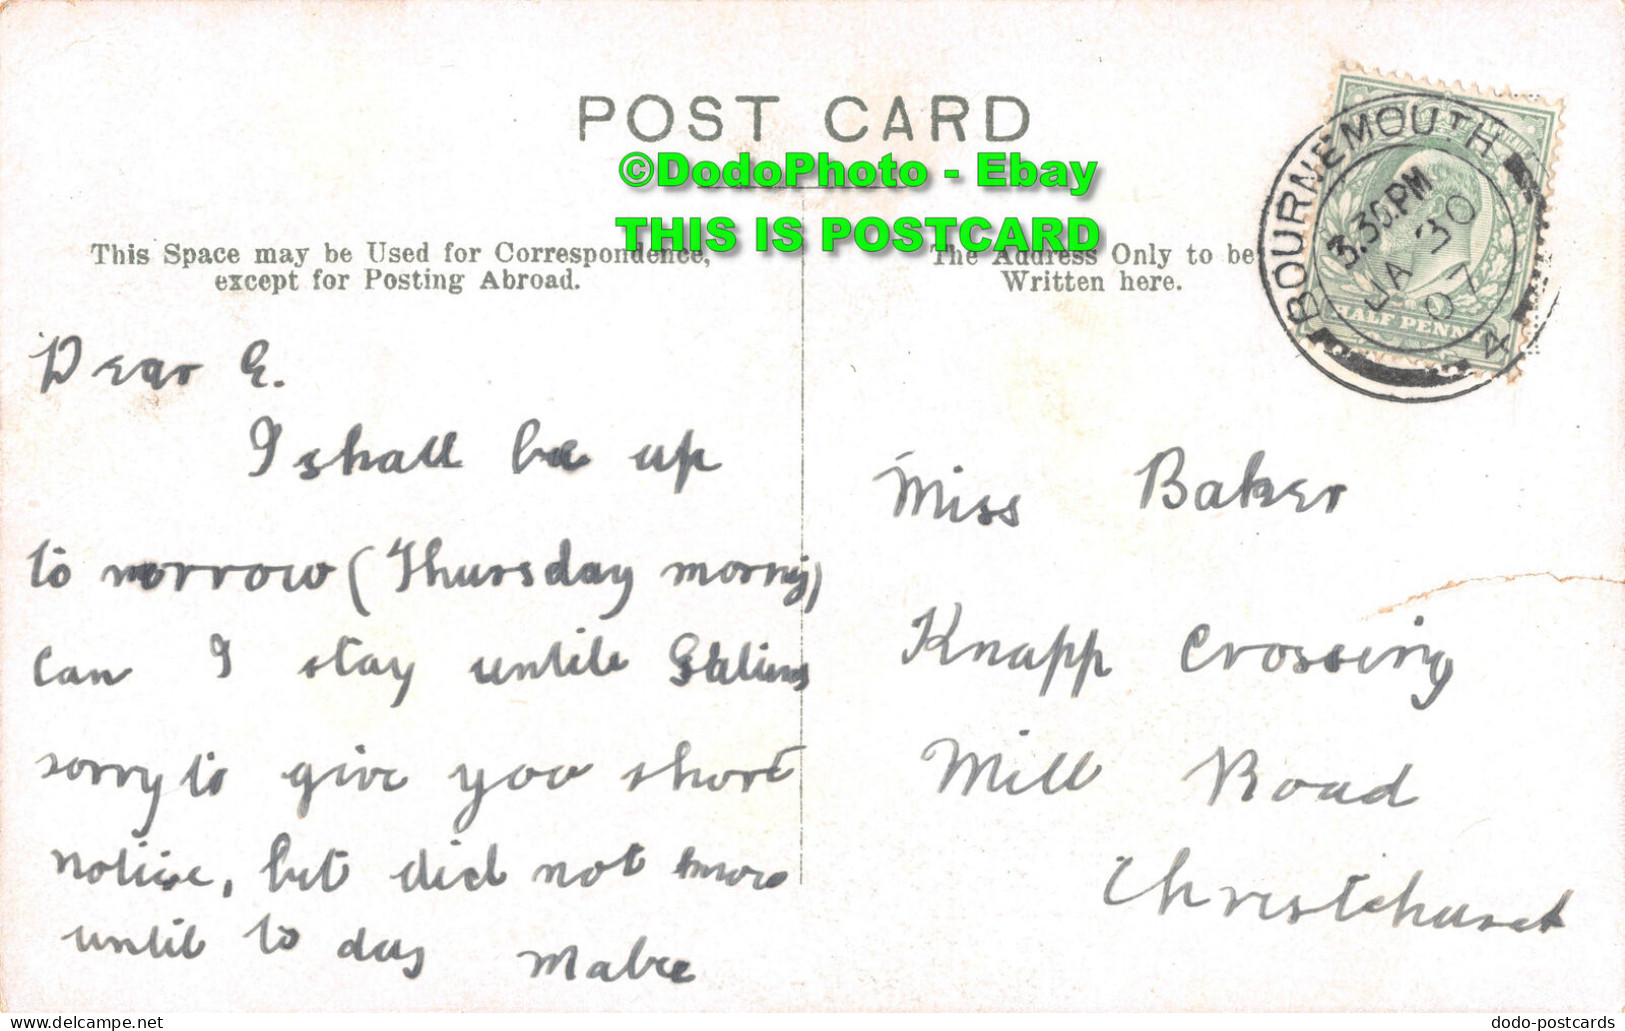 POST CARD
©DodoPhoto - Ebay
THIS IS POSTCARD
This Space may be Used for Correspondence,
except for Posting Abroad.
Dear E.
I shall be up
to morrow (Thursday morning)
can I stay untile
sorry to give you short
notice, but did not know
until to day
The Address Only to be
Written here.
BOURNEMOUTH
3.30.PM
JA 30
07
4
HALF PENNY
Miss Baker
Knapp Crossing
Mill Road
Christchurch
delcampe.net
dodo-postcards